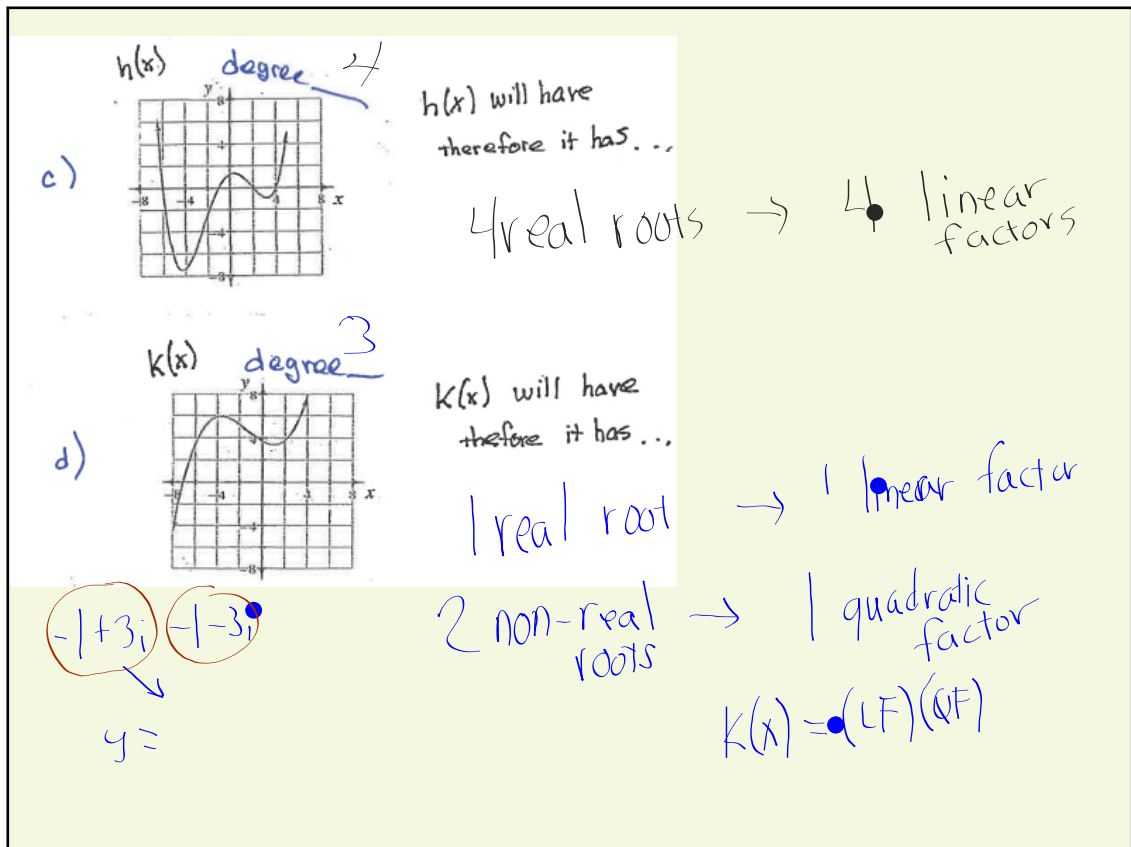 h(x) degree 4
y
8
4
c)
-8 -4 4 8 x
-4
-8
h(x) will have
therefore it has...
4 real roots → 4 linear
factors
k(x) degree 3
y
8
4
d)
-8 -4 4 8 x
-4
-8
k(x) will have
thefore it has...
1 real root → 1 linear factor
2 non-real → 1 quadratic
roots factor
-1+3i -1-3i
y =
K(x) = (LF)(QF)